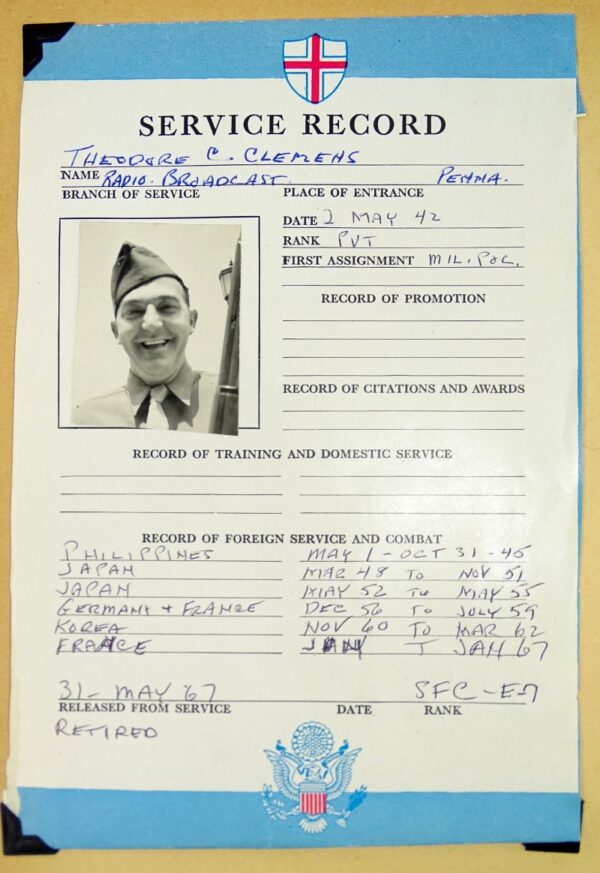 SERVICE RECORD
THEODORE C. CLEMENS
NAME RADIO. BROADCAST. PENNA.
BRANCH OF SERVICE PLACE OF ENTRANCE
DATE 2 MAY 42
RANK PVT
FIRST ASSIGNMENT MIL. POL.
RECORD OF PROMOTION
RECORD OF CITATIONS AND AWARDS
RECORD OF TRAINING AND DOMESTIC SERVICE
RECORD OF FOREIGN SERVICE AND COMBAT
PHILIPPINES MAY 1 - OCT 31 - 45
JAPAN MAR 48 TO NOV 51
JAPAN MAY 52 TO MAY 55
GERMANY + FRANCE DEC 56 TO JULY 59
KOREA NOV 60 TO MAR 62
FRANCE T JAN 67
31 - MAY '67 SFC - E-7
RELEASED FROM SERVICE DATE RANK
RETIRED